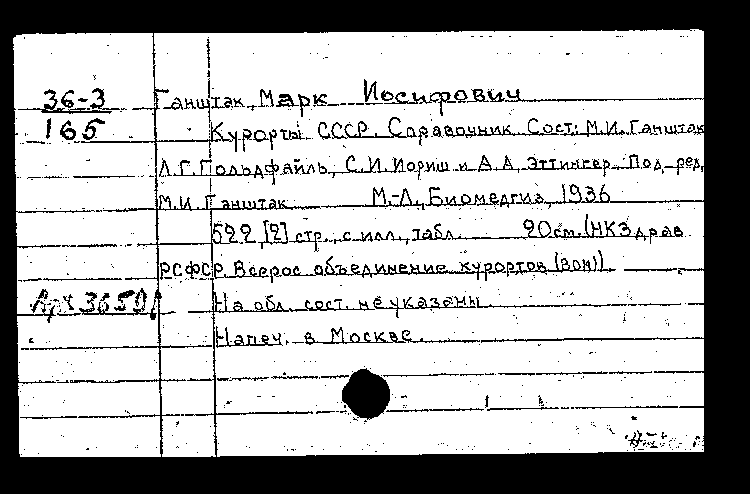 36-3 Ганштак, Марк Иосифович
165 Курорты СССР. Справочник. Сост.: М.И. Ганштак
Л.Г. Гольдфайль, С.И. Иориш и А.А. Эттингер. Под ред.
М.И. Ганштак М.-Л., Биомедгиз, 1936
522, [2] стр., с илл., табл. 20 см. (НКЗдрав
РСФСР. Всерос. объединение курортов (ВОК)).
Арх 3659/ На обл. сост. не указаны.
Напеч. в Москве.